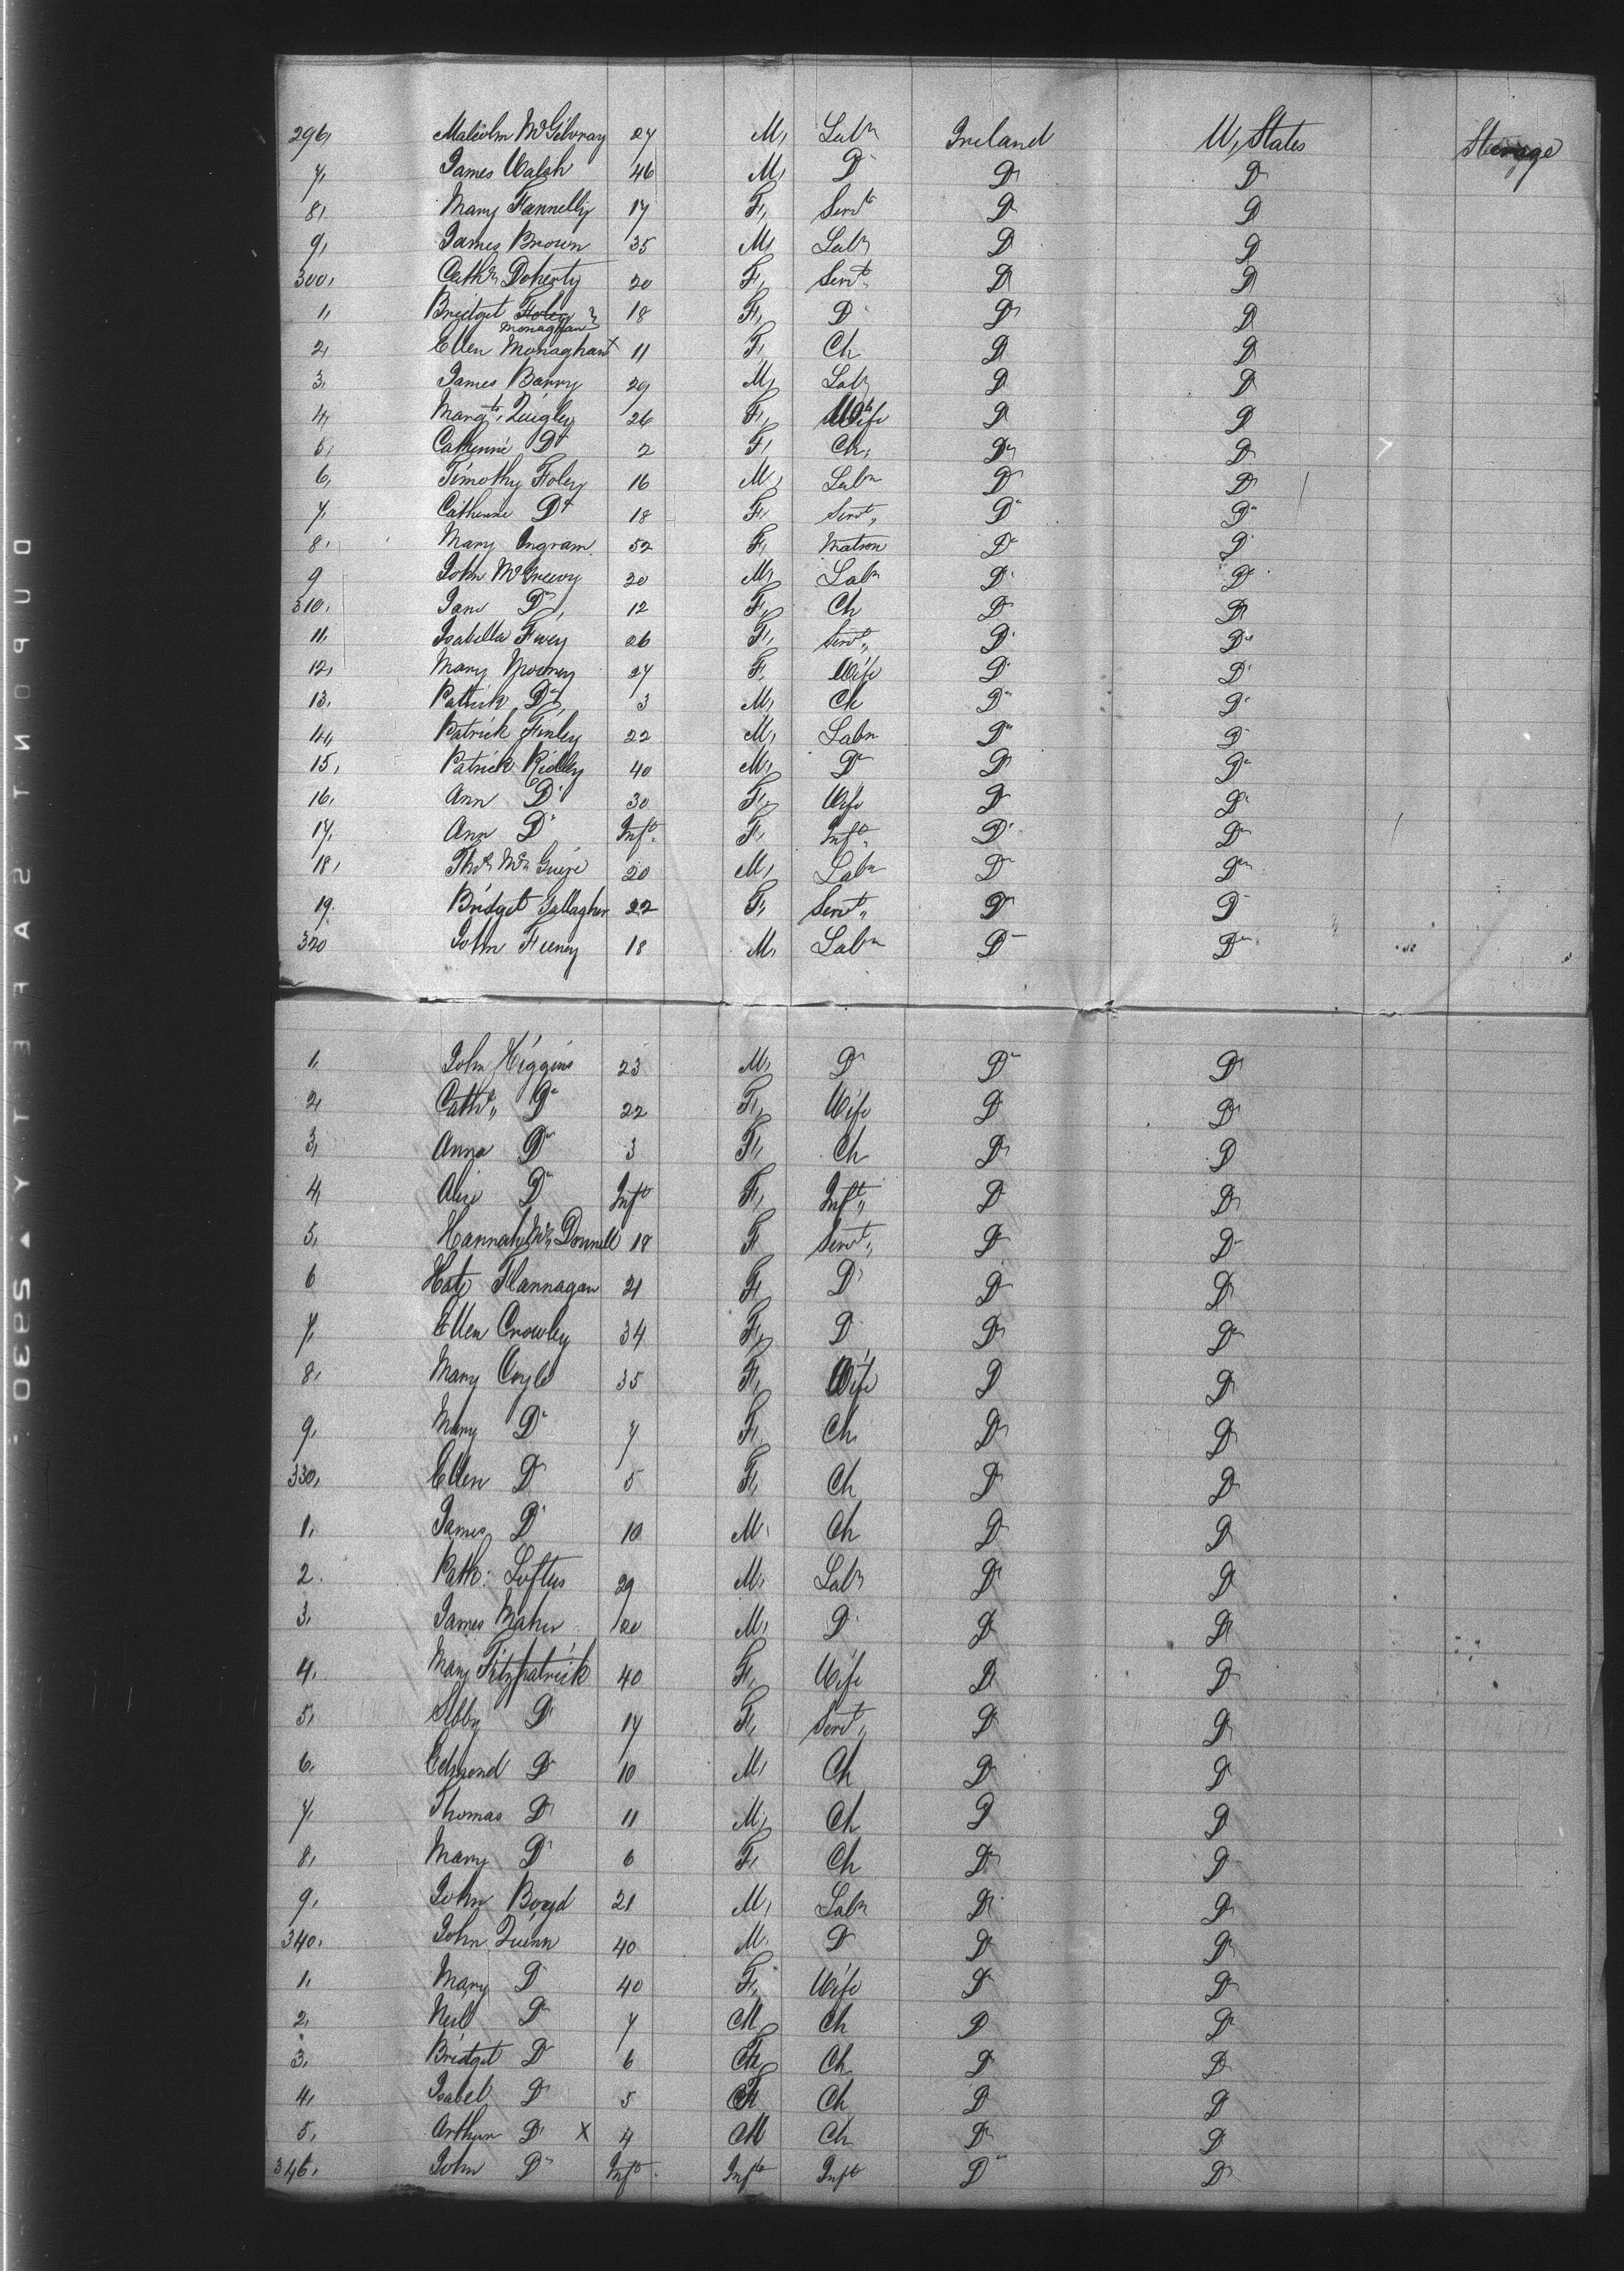 296, Malcolm McGilvray 27 M, Labr Ireland U, States Steerage
7, James Walsh 46 M, Do Do Do
8, Mary Fannelly 17 F, Servt Do Do
9, James Brown 35 M, Labr Do Do
300, Cathn Doherty 20 F, Servt Do Do
1, Bridget Foley 18 F, Do Do Do
Monaghan
2, Ellen Monaghan 11 F, Ch Do Do
3, James Barry 29 M, Labr Do Do
4, Margt, Quigley 26 F, Wife Do Do
5, Catherine Do 2 F, Ch, Do Do
6, Timothy Foley 16 M, Labr Do Do
7, Catherine Do 18 F, Servt, Do Do
8, Mary Ingram 52 F, Matron Do Do
9 John McGreevy 20 M, Labr Do Do
310, Jane Do, 12 F, Ch Do Do
11, Isabella 26 F, Servt, Do Do
12, Mary Mooney 27 F, Wife Do Do
13, Patrick Do, 3 M, Ch Do Do
14, Patrick Finley 22 M, Labr Do Do
15, Patrick Ridley 40 M, Do Do Do
16, Ann Do 30 F, Wife Do Do
17, Ann Do Inft F, Inft, Do Do
18, Thos 20 M, Labr Do Do
19. Bridget Gallagher 22 F, Servt, Do Do
320 John Feeney 18 M, Labr Do Do
1, John Higgins 23 M, Do Do Do
2, Cathn, Do 22 F, Wife Do Do
3, Anna Do 3 F, Ch Do Do
4, Alice Do Inft F, Inft, Do Do
5, Hannah McDonnell 18 F Servt, Do Do
6 Kate Flannagan 21 F, Do Do Do
7, Ellen Crowley 34 F, Do Do Do
8, Mary Coyle 35 F, Wife Do Do
9, Mary Do 7 F, Ch Do Do
330, Ellen Do 5 F, Ch Do Do
1, James Do 10 M, Ch Do Do
2. Patk: Loftus 29 M, Labr Do Do
3, James Maher 20 M, Do Do Do
4, Mary Fitzpatrick 40 F, Wife Do Do
5, Sibby Do 17 F, Servt, Do Do
6, Edmond Do 10 M, Ch Do Do
7, Thomas Do 11 M, Ch Do Do
8, Mary Do 6 F, Ch Do Do
9, John Boyd 21 M, Labr Do Do
340, John Quinn 40 M. Do Do Do
1, Mary Do 40 F, Wife Do Do
2, Neil Do 7 M Ch Do Do
3, Bridget Do 6 F Ch Do Do
4, Isabel Do 5 F Ch Do Do
5, Arthur Do X 4 M Ch Do Do
346, John Do Inft Inft Inft Do Do
DUPONT SAFETY ▲ S930: